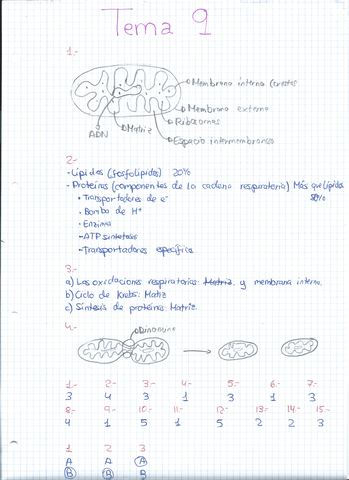 Tema 9
1.-
Membrana interna (crestas
Membrana externa
Ribosomas
Matriz
ADN
Espacio intermembranoso
2-
-Lípidos (fosfolípidos) 20%
-Proteínas (componentes de la cadena respiratoria) Más que lípidos
80%
• Transportadores de e-
• Bomba de H+
• Enzima
-ATP sintetasa
-Transportadores específicos
3.-
a) Las oxidaciones respiratorias: Matriz y membrana interna.
b) Ciclo de Krebs: Matriz
c) Síntesis de proteínas: Matriz.
4.-
1.- 2.- 3.- 4.- 5.- 6.- 7.-
3 4 3 1 3 1 3
8.- 9.- 10.- 11.- 12.- 13.- 14.- 15.-
4 1 5 1 5 2 2 3
1 2 3
A A A
B B B